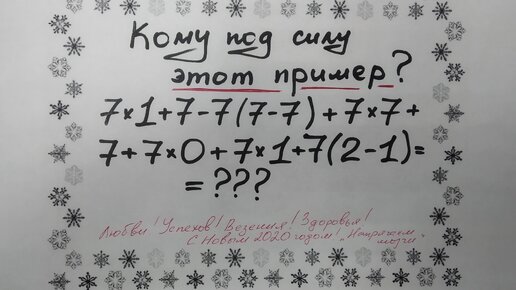 Кому под силу
этот пример?
7×1+7-7(7-7)+7×7+
7+7×0+7×1+7(2-1)=
=???
Любви! Успехов! Везения! Здоровья!
С Новым 2020 годом! „Напрягаем
мозги"